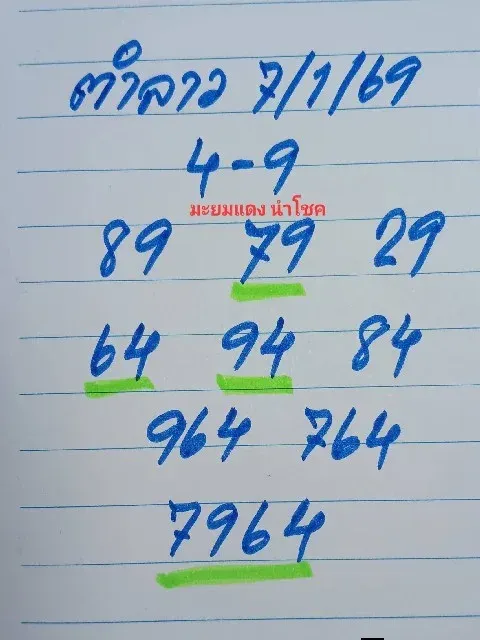 ตำลาว 7/1/69
4-9
มะยมแดง นำโชค
89 79 29
64 94 84
964 764
7964